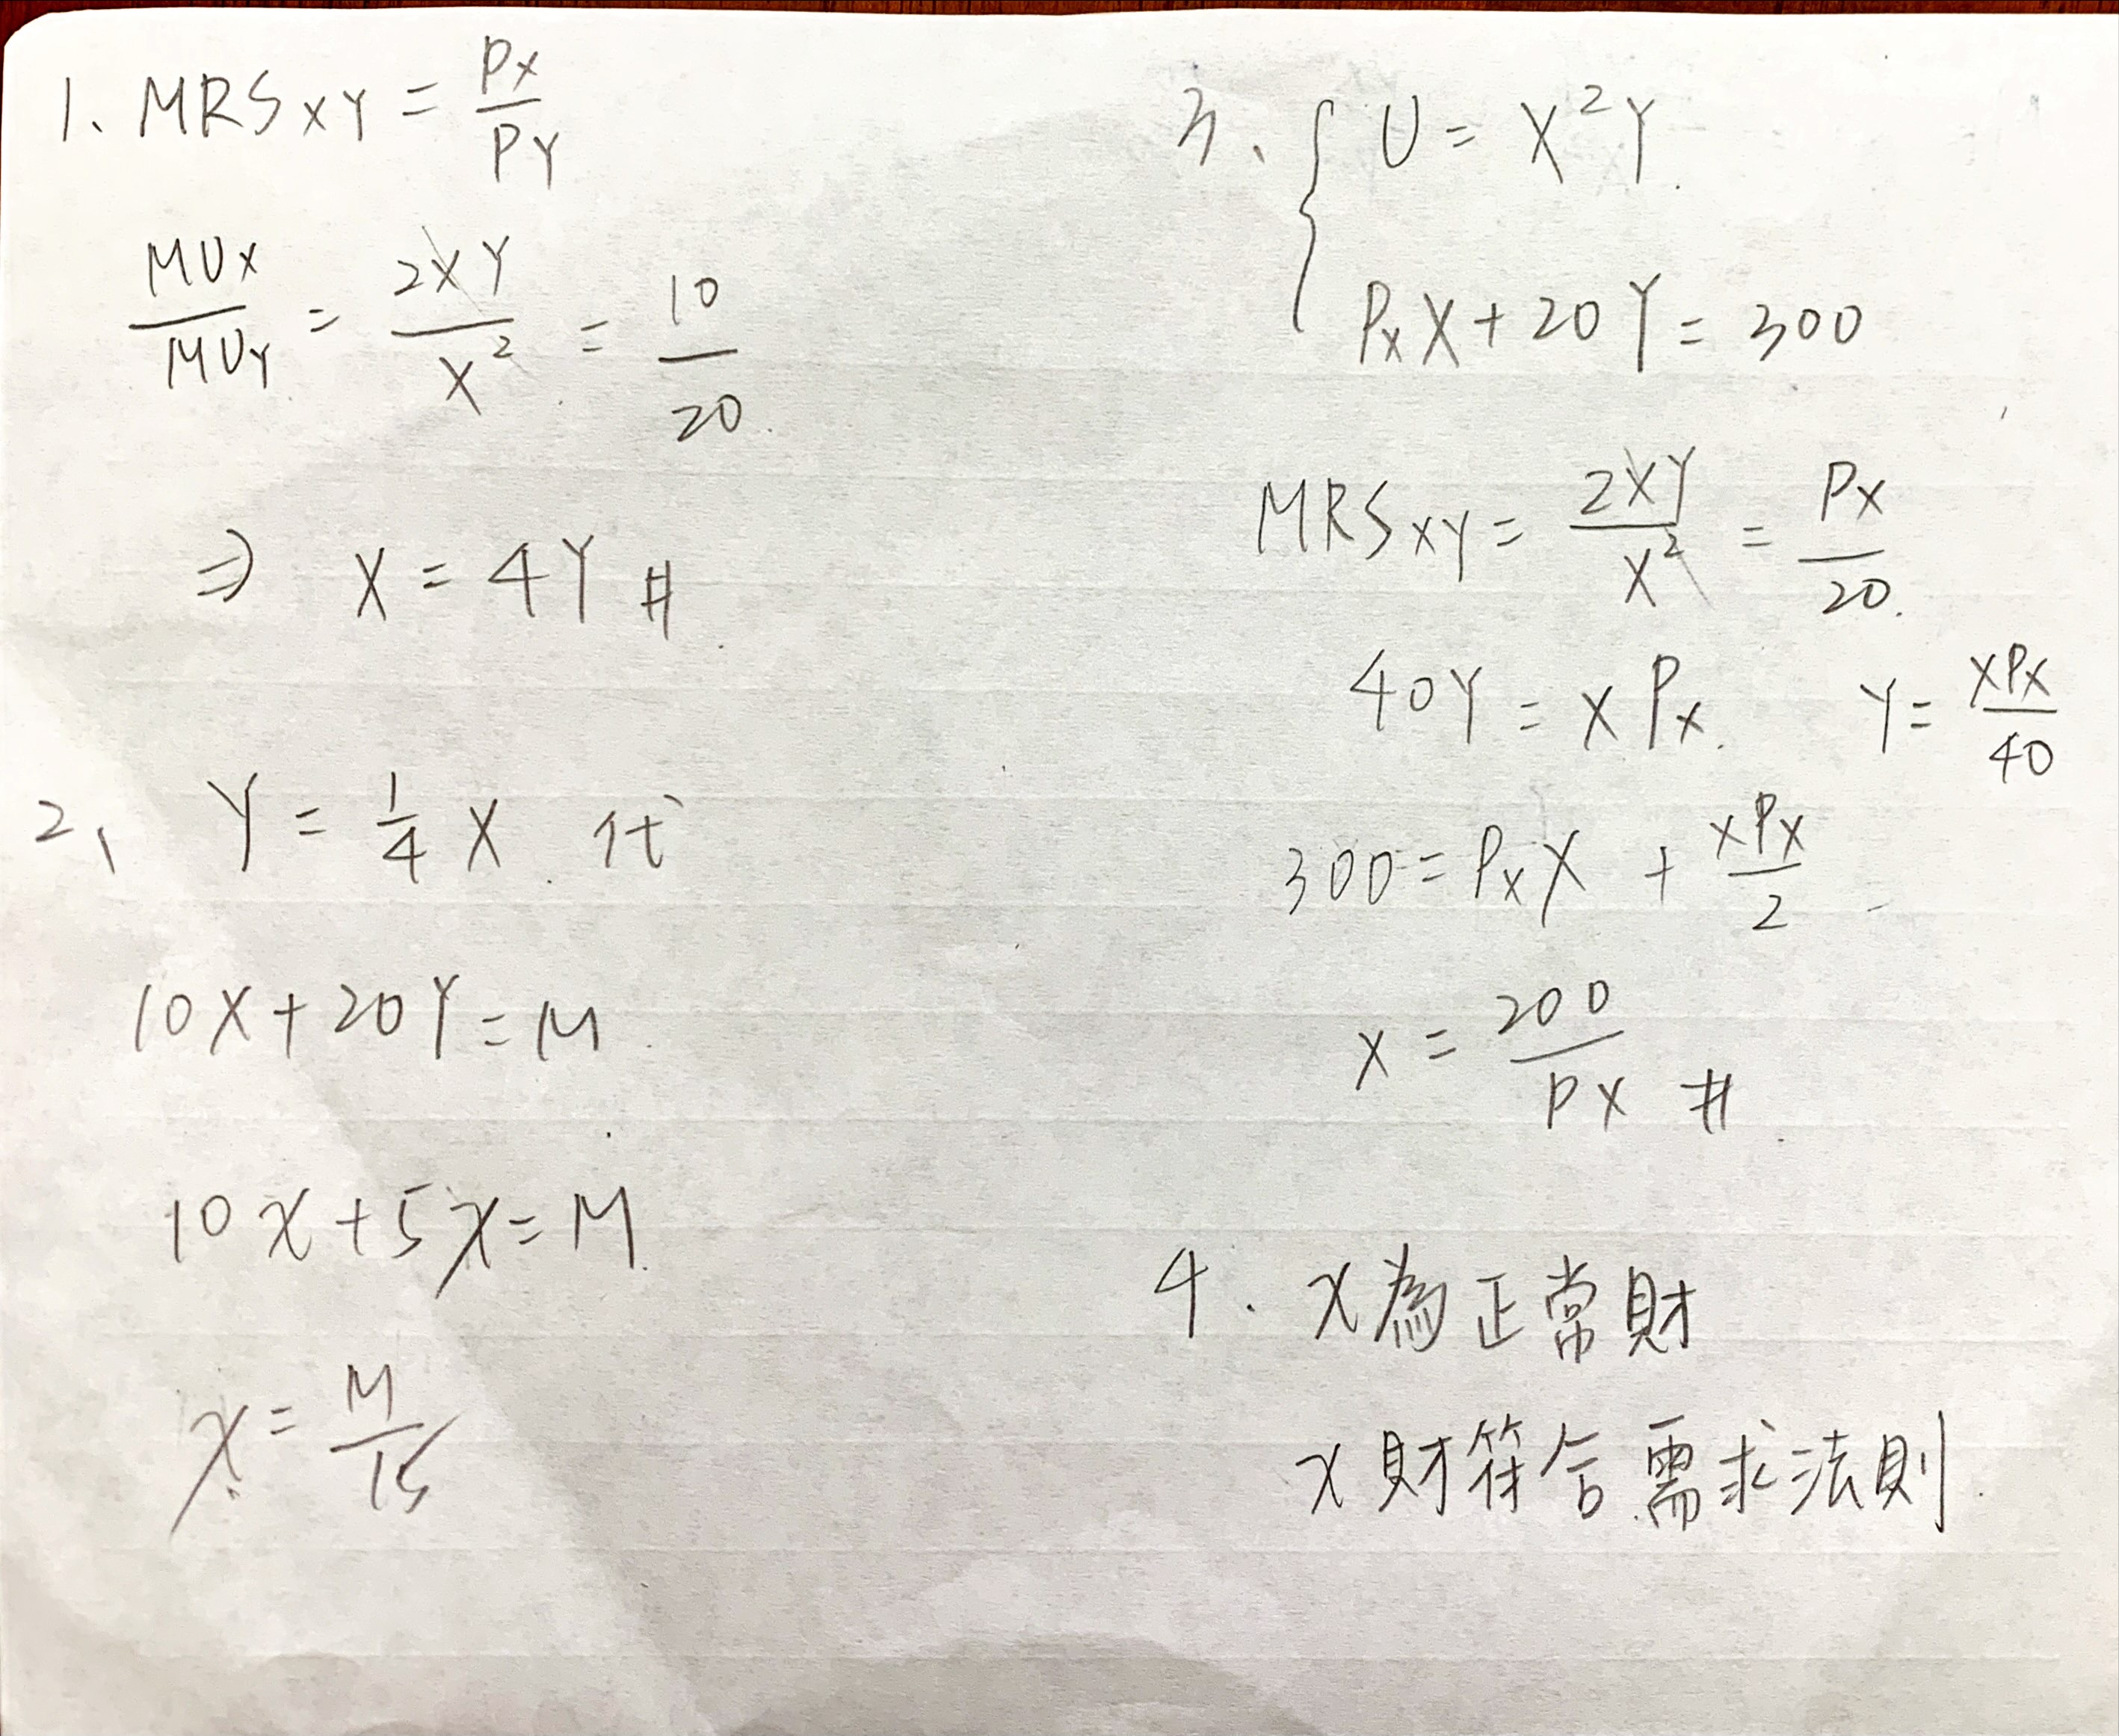 1、MRS XY = PX/PY
MUX/MUY = 2XY/X² = 10/20
⇒ X = 4Y #
2、Y = 1/4 X 代
10X + 20Y = M
10x + 5x = M
x = M/15
3、{ U = X²Y
PxX + 20Y = 300
MRS XY = 2XY/X² = PX/20
40Y = XPx Y = XPX/40
300 = PxX + XPX/2
X = 200/PX #
4. x為正常財
x財符合需求法則